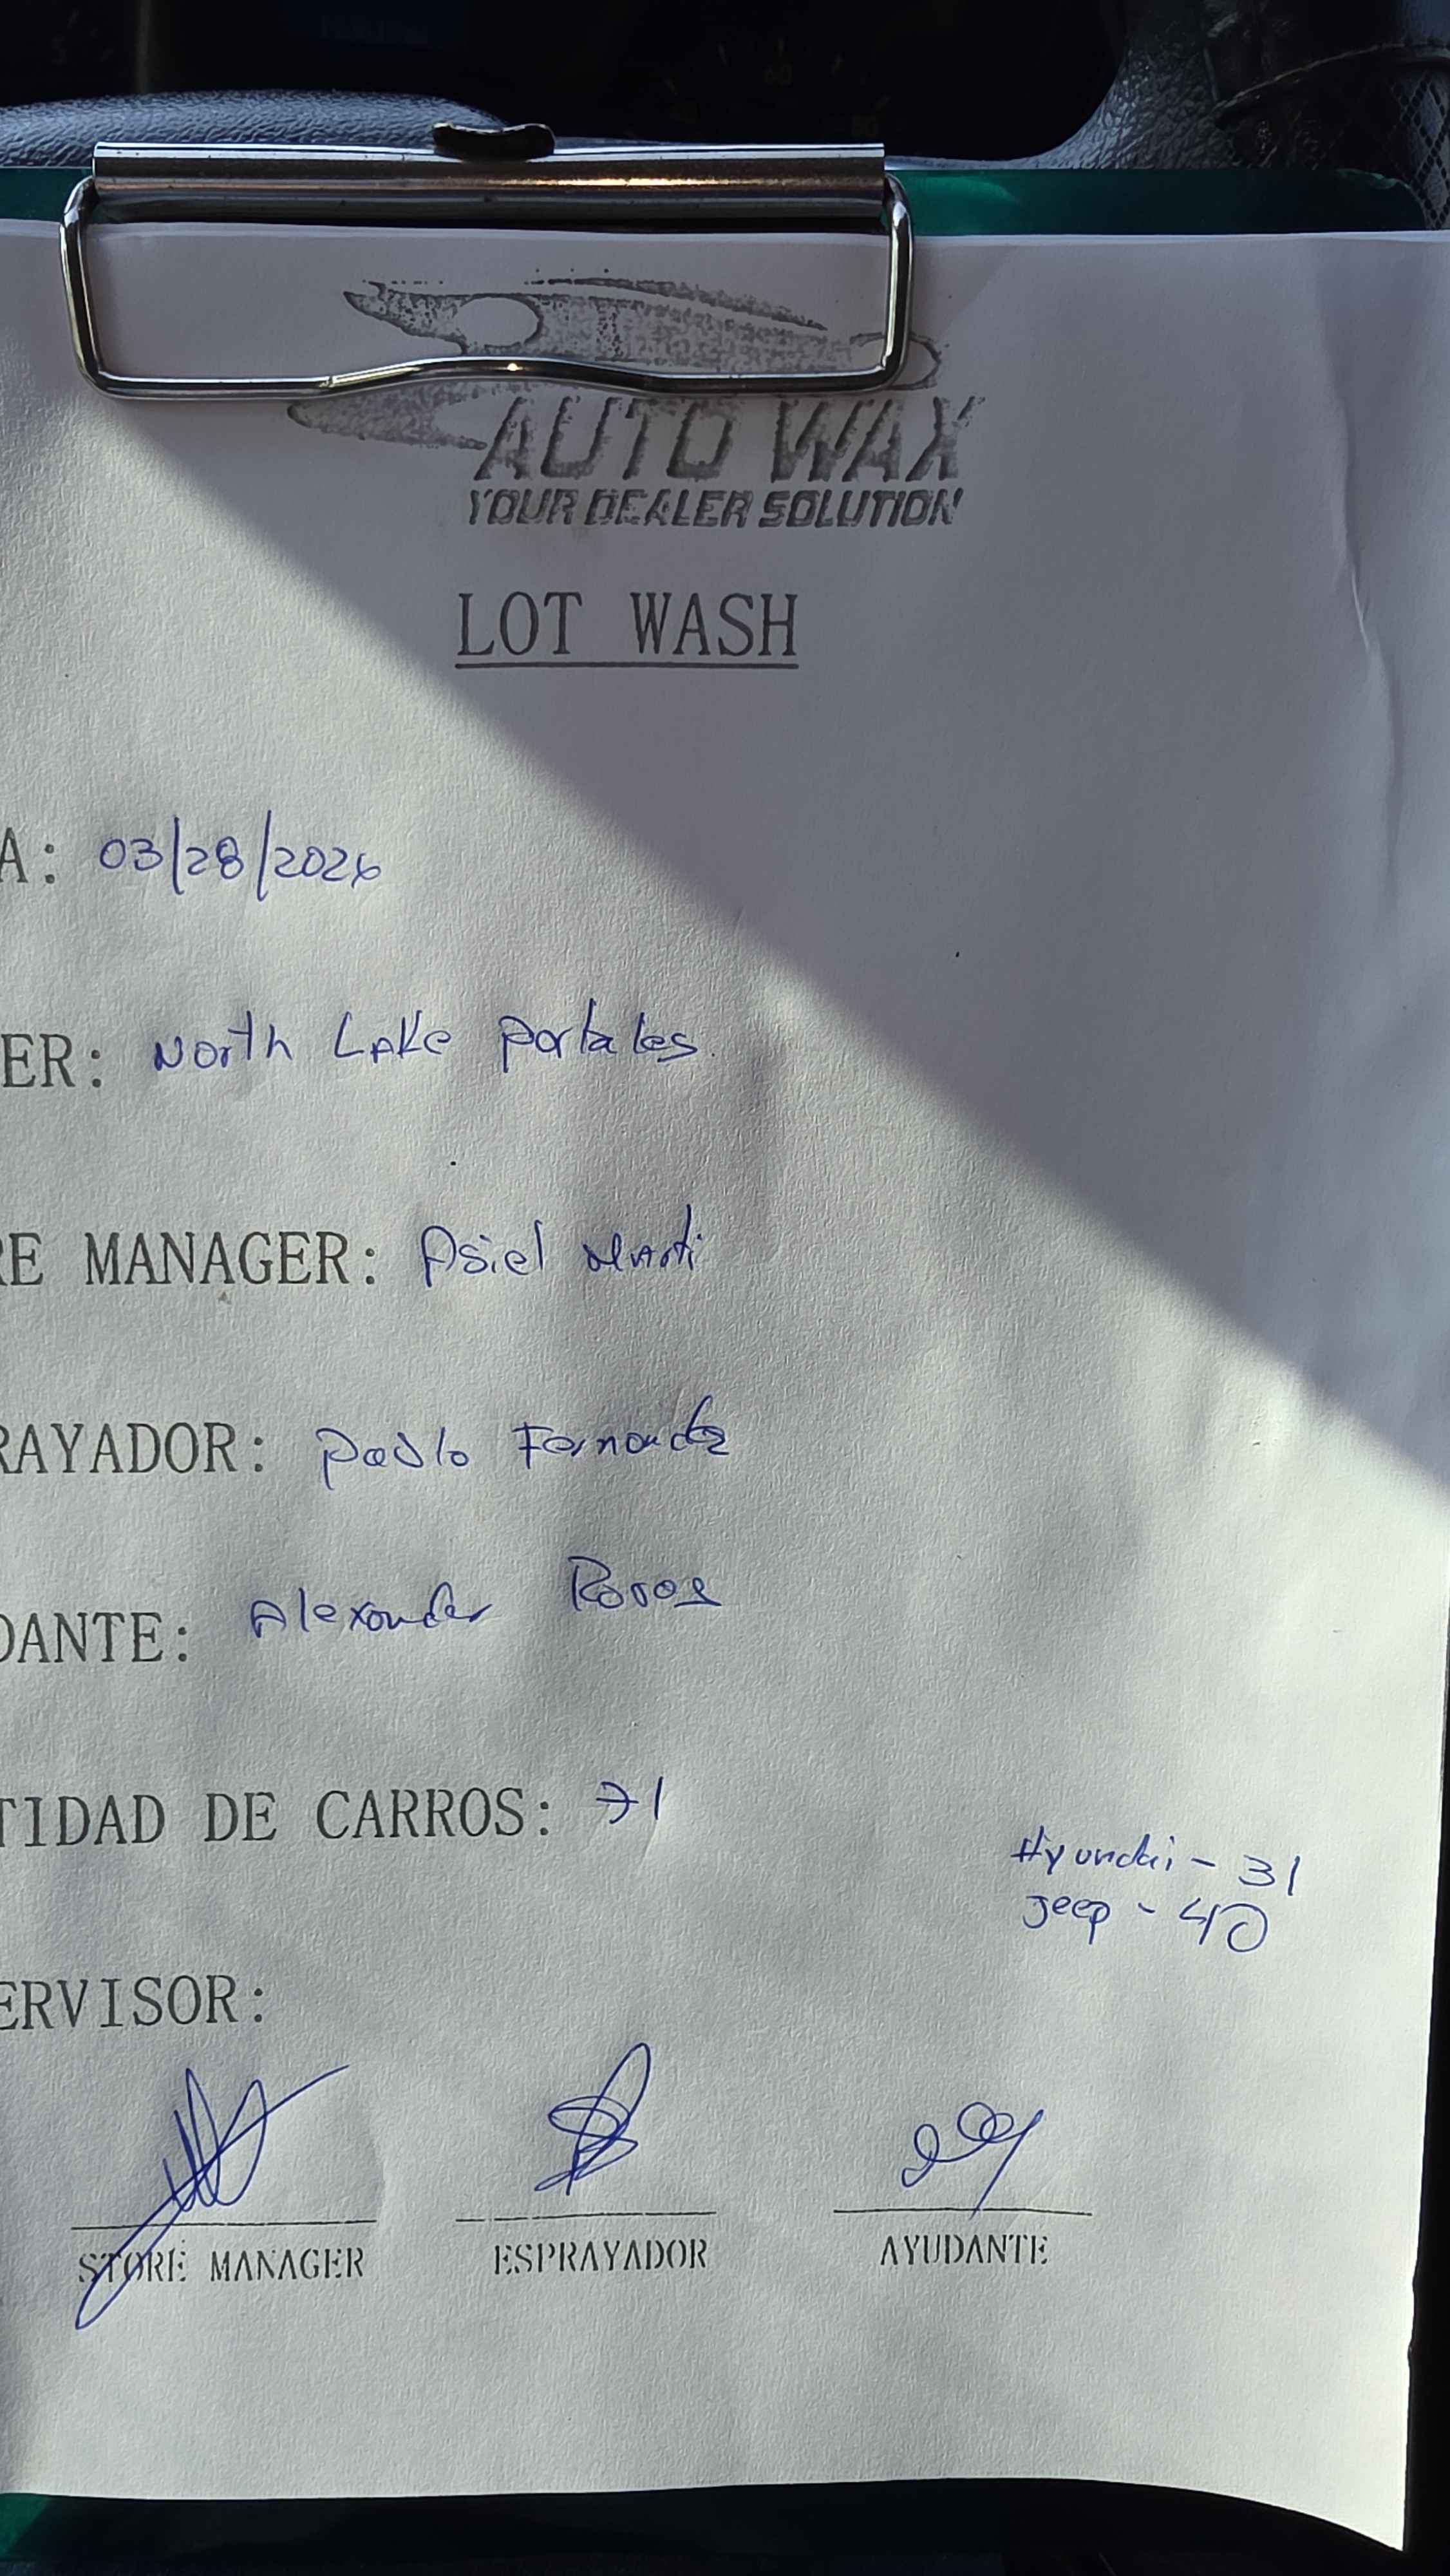 AUTO WAX
YOUR DEALER SOLUTION
LOT WASH
A: 03/28/2026
ER: North Lake portales
RE MANAGER: Asiel Marti
RAYADOR: Pablo Fernandez
DANTE: Alexander
TIDAD DE CARROS: 71
Hyundai - 31
Jeep - 40
ERVISOR:
STORE MANAGER ESPRAYADOR AYUDANTE